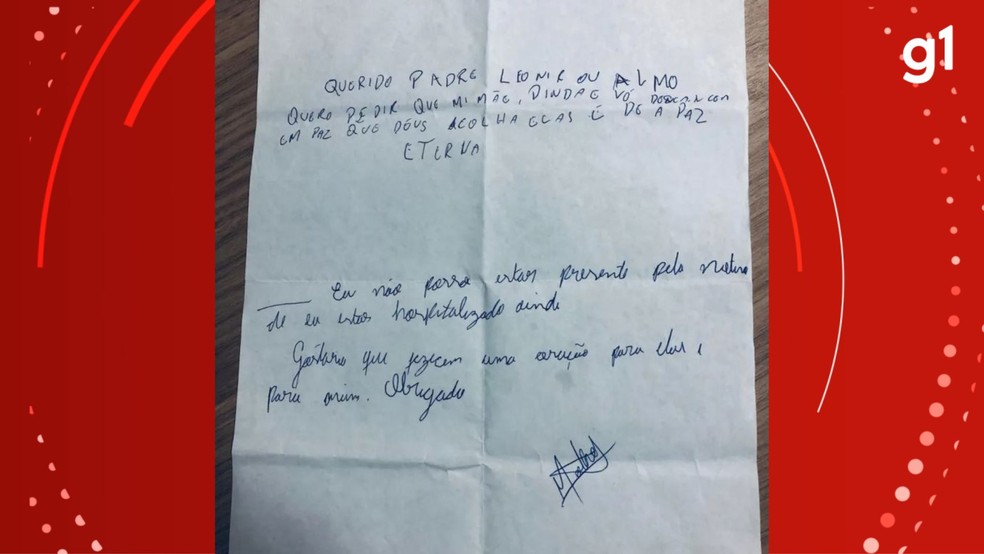 g1
QUERIDO PADRE LEONIR OU ALMO
QUERO PEDIR QUE MI MÃE, DINDA E VÓ DESCANCEM
EM PAZ QUE DEUS ACOLHA ELAS É DE A PAZ
ETERNA
Eu não posso estar presente pelo motivo
de eu estar hospitalizado ainda
Gostaria que fizecem uma oração para elas e
para mim. Obrigado